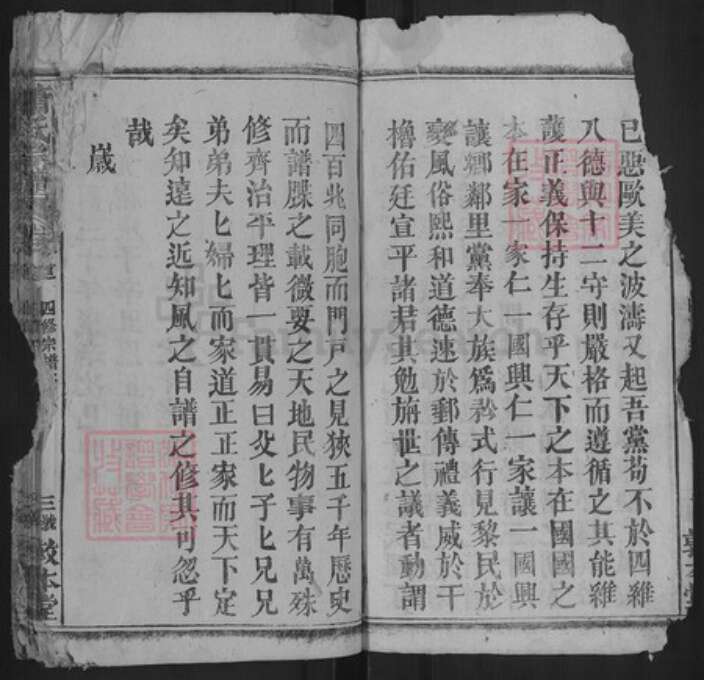 已惡歐美之波濤又起吾黨苟不於四維
八德與十二守則嚴格而遵循之其能維
護正義保持生存乎天下之本在國國之
本在家一家仁一國興仁一家讓一國興
讓鄉鄰里黨奉大族為矜式行見黎民於
變風俗熙和道德速於郵傳禮義威於干
櫓佑廷宣平諸君其勉旃世之議者動謂
四百兆同胞而門戶之見狹五千年歷史
而譜牒之載微要之天地民物事有萬殊
修齊治平理皆一貫易曰父匕子匕兄兄
弟弟夫匕婦匕而家道正正家而天下定
矣知遠之近知風之自譜之修其可忽乎
哉
歲
四修宗譜
三號
敦本堂